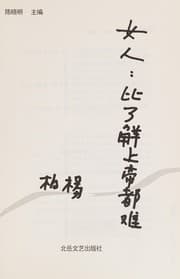 陈晓明 主编
女人:比了解上帝都难
柏杨
北岳文艺出版社